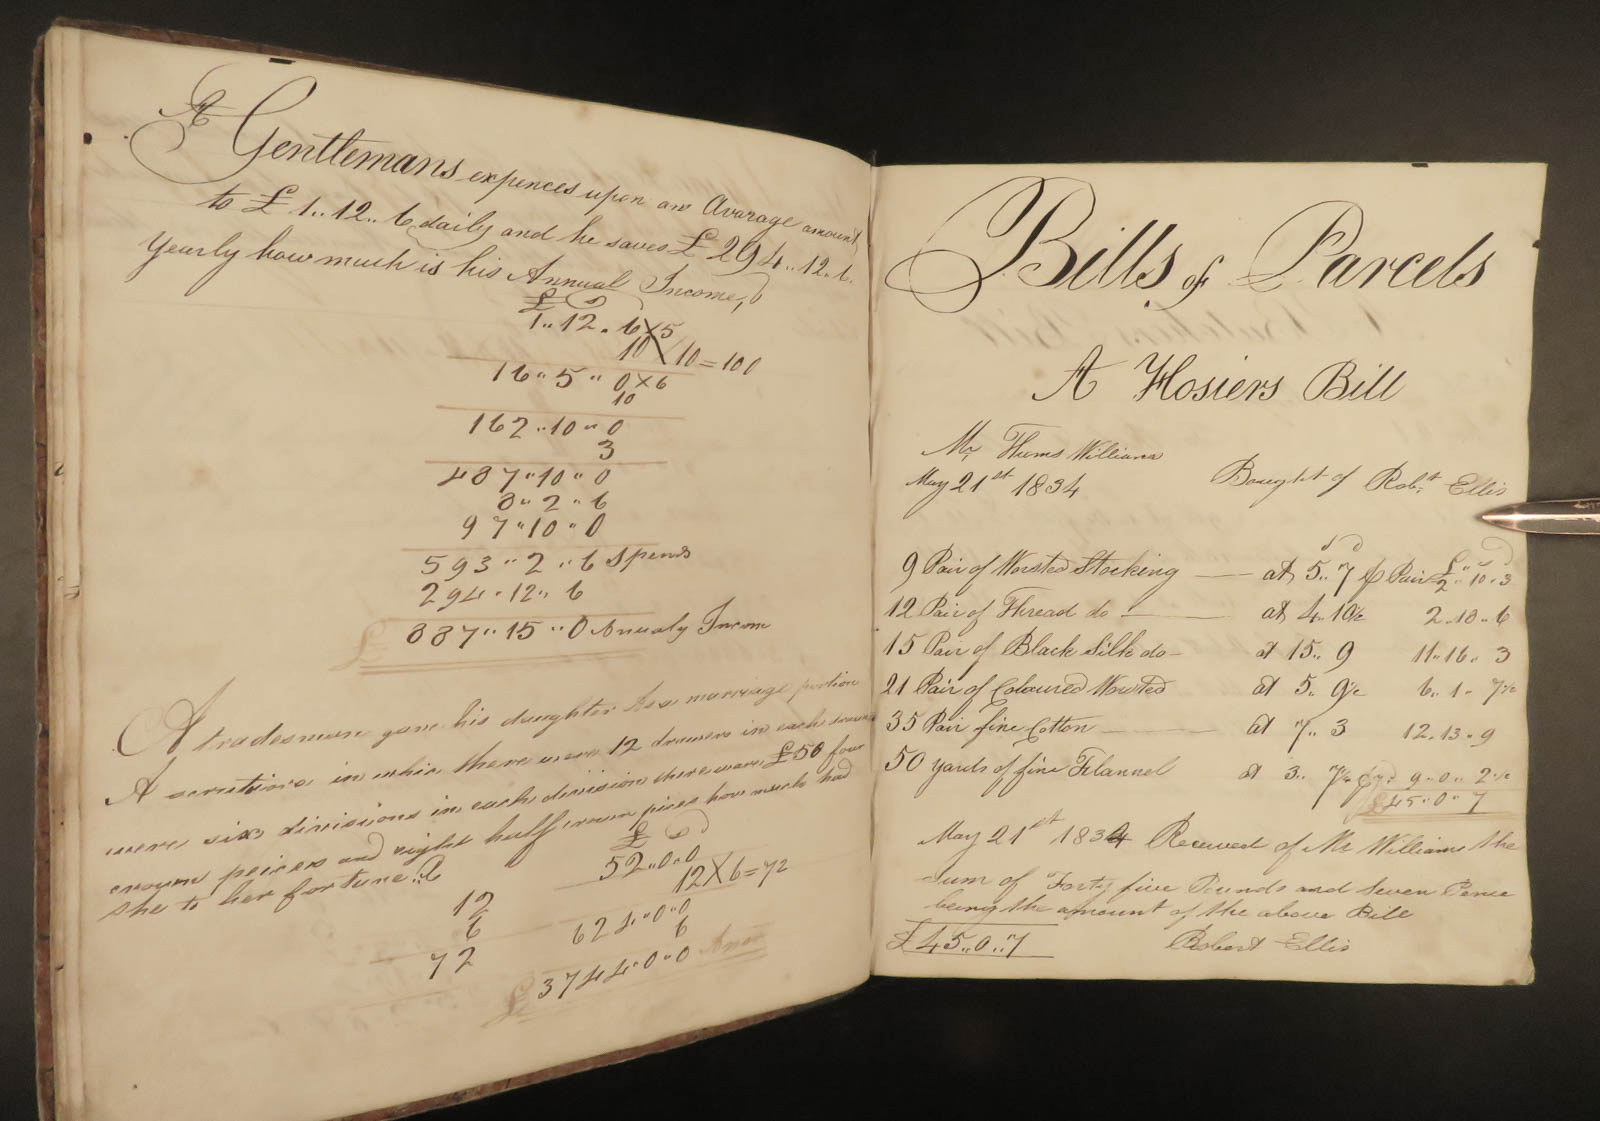 A Gentlemans expences upon an Avarage amount
to £ 1..12..6 daily and he saves £ 294..12..6.
Yearly how much is his Annual Income,
£
1..12..6 X 5
10 X 10 = 100
16..5..0 X 6
10
162..10..0
3
487..10..0
8..2..6
97..10..0
593..2..6 Spends
294..12..6
£ 887..15..0 Anualy Incom
A tradesman gave his daughter as a marriage portion
A scrutiore in which there were 12 drawers in each drawer
were six divisions in each division there were £50 four
crown peices and eight half crown pices how much had
she to her fortune
£
52..0..0
12 X 6 = 72
12
6
72
624..0..0
6
£ 3744..0..0 Answ
Bills of Parcels
A Hosiers Bill
Mr Thums Williams
May 21st 1834 Bought of Robt Ellis
9 Pair of Worsted Stocking at 5..7 p Pair £ 2..10..3
12 Pair of Thread do at 4..10½ 2..18..6
15 Pair of Black Silk do at 15..9 11..16..3
21 Pair of Coloured Worsted at 5..9½ 6..1..7½
35 Pair fine Cotton at 7..3 12..13..9
50 yards of fine Flannel at 3..7¼ p yd 9..0..2½
£45..0..7
May 21st 1834 Received of Mr Williams the
sum of Forty five Pounds and Seven Pence
being the amount of the above Bill
£45..0..7 Robert Ellis